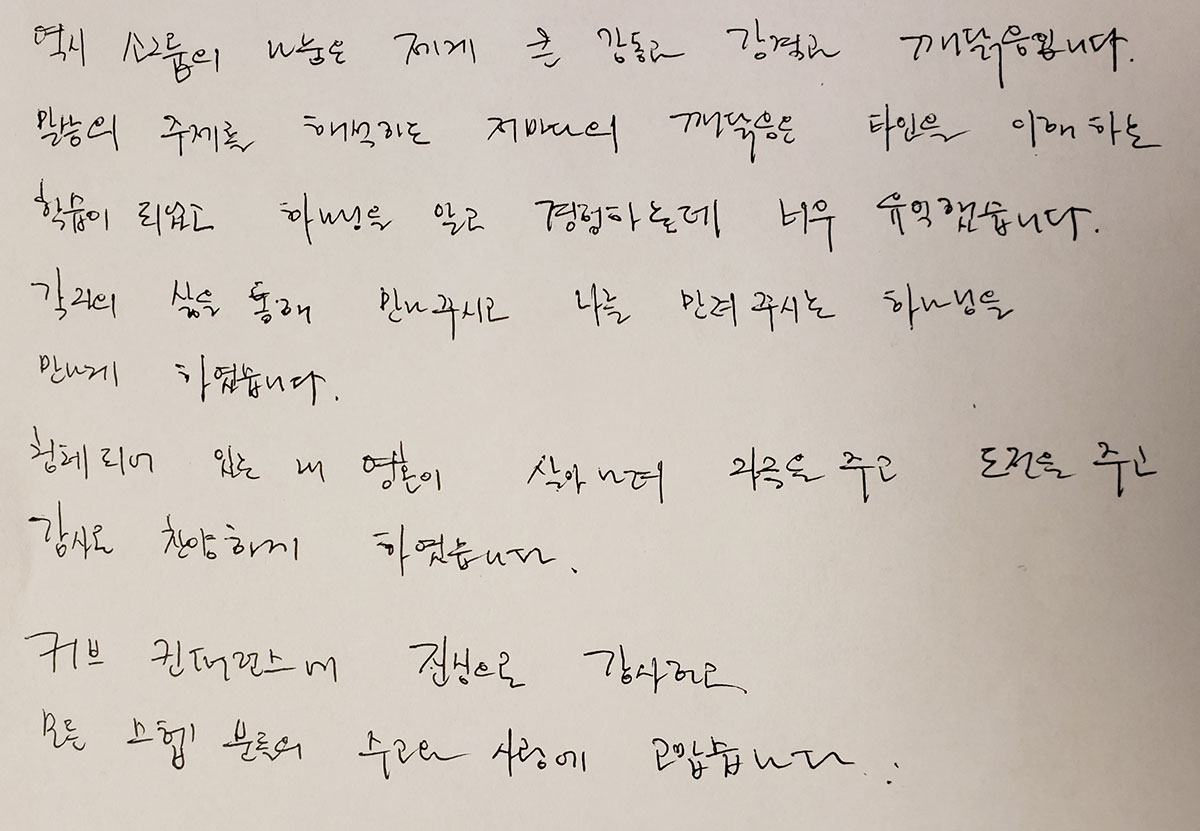 역시 소그룹의 나눔은 제게 큰 감동과 감격과 깨달음입니다.
말씀의 주제를 해석하는 저마다의 깨달음은 타인을 이해하는
학습이 되었고 하나님을 알고 경험하는데 너무 유익했습니다.
각자의 삶을 통해 만나주시고 나를 만져주시는 하나님을
만나게 하였습니다.
침체되어 있는 내 영혼이 살아나며 자극을 주고 도전을 주고
감사로 찬양하게 하였습니다.
커브 컨퍼런스에 진심으로 감사하고
모든 스텝 분들의 수고와 사랑에 고맙습니다..